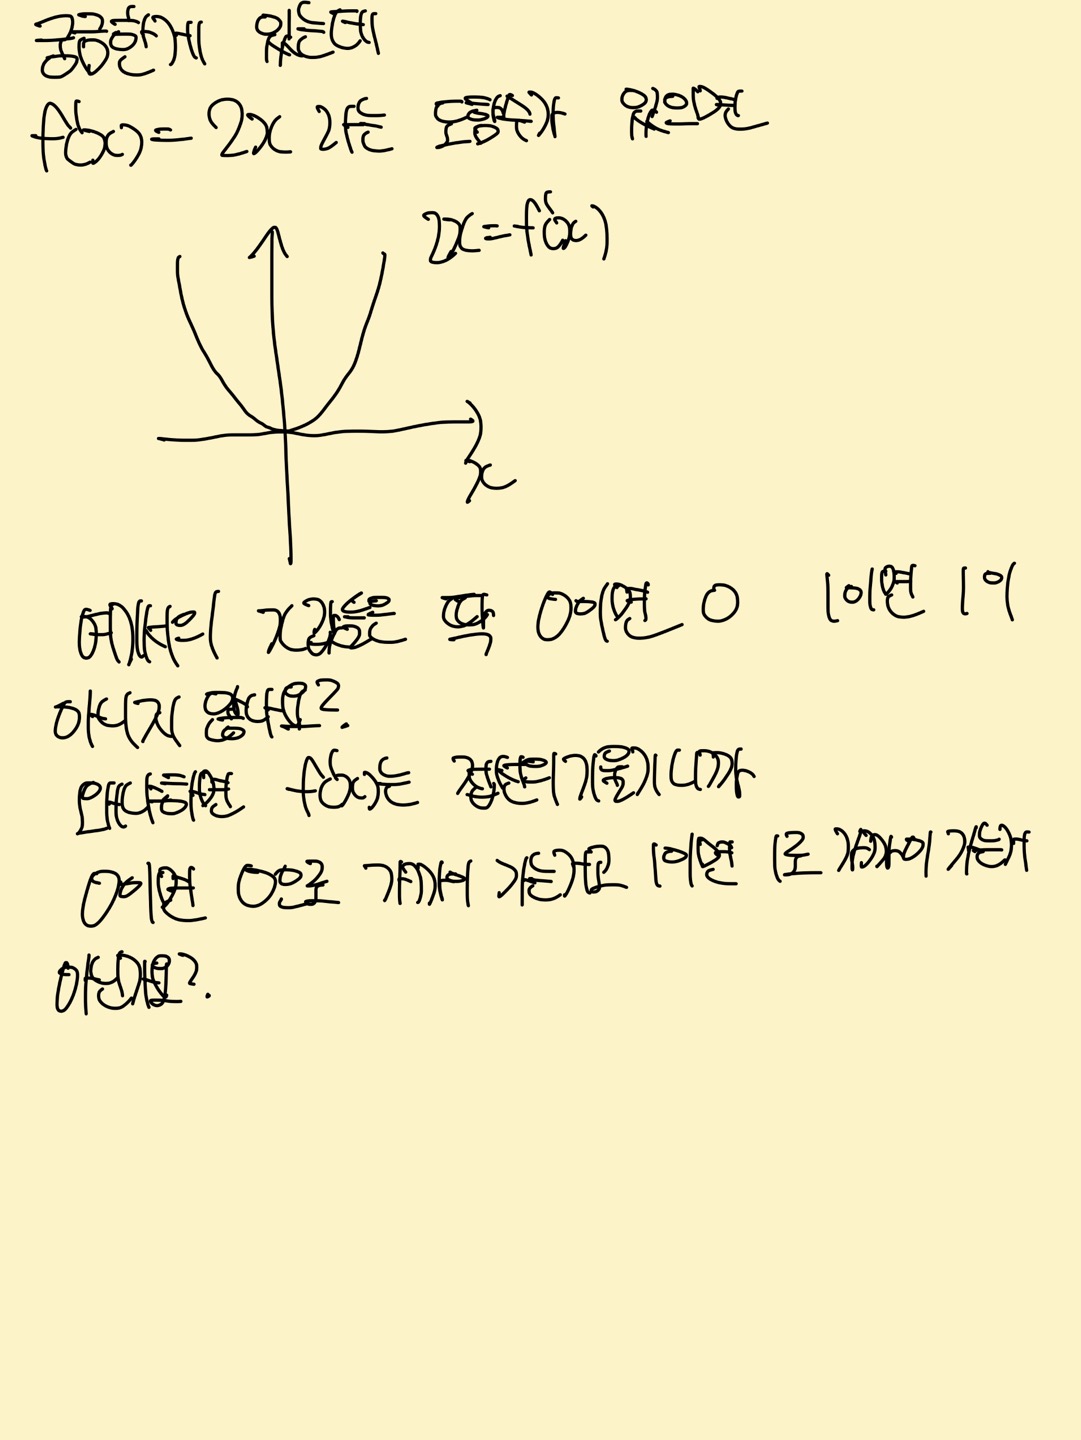 궁금한게 있는데
f'(x)=2x 라는 도함수가 있으면
2x=f'(x)
x
에서의 x값은 딱 0이면 0 1이면 1이
아니지 않나요?
왜냐하면 f'(x)는 접선의기울기니까
0이면 0으로 가까이 가는거고 1이면 1로 가까이 가는거
아닌가요?